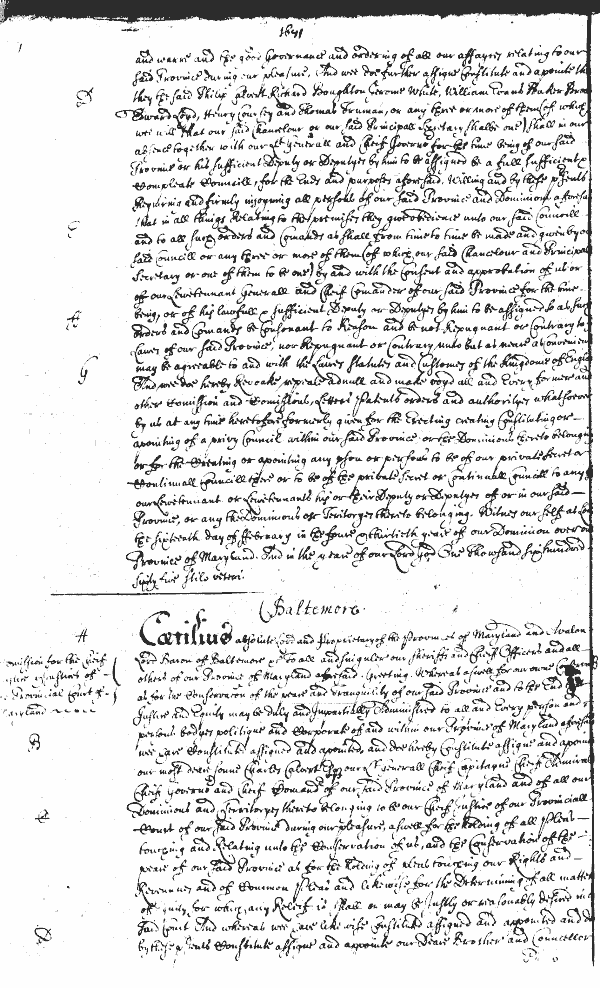 1671
and warre and the good Governance and ordering of all our affayres relating to our
said Province during our pleasure. And wee doe further assigne Constitute and apointe th
they the said Philip Calvert Richard Boughton Jerome White, William Evans Baker Brooke
D
Edward Loyd, Henry Coursey and Thomas Truman, or any three or more of them (of which
wee will that our said Chancelour or our said Principall Secretary shalbe one) shall in our
absence together with our Lt Generall and Cheif Governor for the time being of our said
Province or his sufficient Deputy or Deputyes by him to be assigned be a full sufficient &
Compleate Councill, for the Ends and purposes aforesaid. Willing and by these psents
Requiring and firmly injoyning all persons of our said Province and Dominions aforesaid
that in all things Relating to the premises they give obedience unto our said Councill
E
and to all such orders and Comands as shall from time to time be made and given by our
said Councill or any three or more of them (of which our said Chancelour and Principall
Secretary or one of them to be one) by and with the Consent and approbation of us or
of our Lieutennant Generall and Cheif Comander of our said Province for the time
being, or of his lawfull & sufficient Deputy or Deputyes by him to be assigned So as such
F
orders and Comands be Consonant to Reason and be not Repugnant or Contrary to
Lawes of our said Province, nor Repugnant or Contrary unto but as neare as Convenien
may be agreable to and with the Lawes Statutes and Customes of the Kingdome of Engla
G
And wee doe hereby Revoake repeale adnull and make voyd all and Every former and
other Comission and Comissions, Letters Patents orders and authorityes whatsoever
by us at any time heretofore formerly given for the Erecting creating Constituting or
apointing of a privy Council within our said Province or the Dominions thereto belonging
or for the Creating or apointing any pson or persons to be of our private Secret or
Continuall Councill there or to be of the private Secret or Continuall Councill to any of
our Lieutennant or Lieutennants his or their Deputy or Deputyes of or in our said
Province, or any the Dominions or Territoryes thereto belonging. Witnes our self at
the sixteenth day of February in the foure & thirtieth yeare of our Dominion over our
Province of Maryland. And in the yeare of our Lord God One thousand six hundred
sixty five Stilo veteri.
C Baltemore
A
Cæcilius absolute Lord and Proprietary of the Provinces of Maryland and Avalon
omission for the Cheif
Lord Baron of Baltemore &c To all and singuler our Sheriffs and Cheif Officers and all
Justice of
others of our Province of Maryland aforesaid. Greeting Whereas aswell for our owne
Provincial Court of
as for the Conservation of the peace and tranquility of our said Province and to the End
Maryland
Justice and Equity may be duly and Impartially Administred to all and Every person and
persons bodyes politique and Corporate of and within our Province of Maryland aforesaid
B
wee have Constituted assigned and apointed, and doe hereby Constitute assigne and apoint
our most deare sonne Charles Calvert Esqr our Lt Generall Cheif Capitayne Cheif Admirall
Cheif Governor and Cheif Comander of our said Province of Maryland and of all our
Dominions and Territoryes thereto belonging to be our Cheif Justice of our Provinciall
C
Court of our said Province during our pleasure, aswell for the holding of all Pleas
touching and Relating unto the Conservation of us, and the Conservation of the
peace of our said Province as for the holding of Pleas touching our Rights and
Revennues and of Common Pleas and likewise for the Determining of all matters
of Equity, for which any Releif is shall or may be Justly or reasonably desired in our
D
said Court And whereas wee have likewise Constituted assigned and appointed and do
by these psents Constitute assigne and appointe our Deare Brother and Councellor